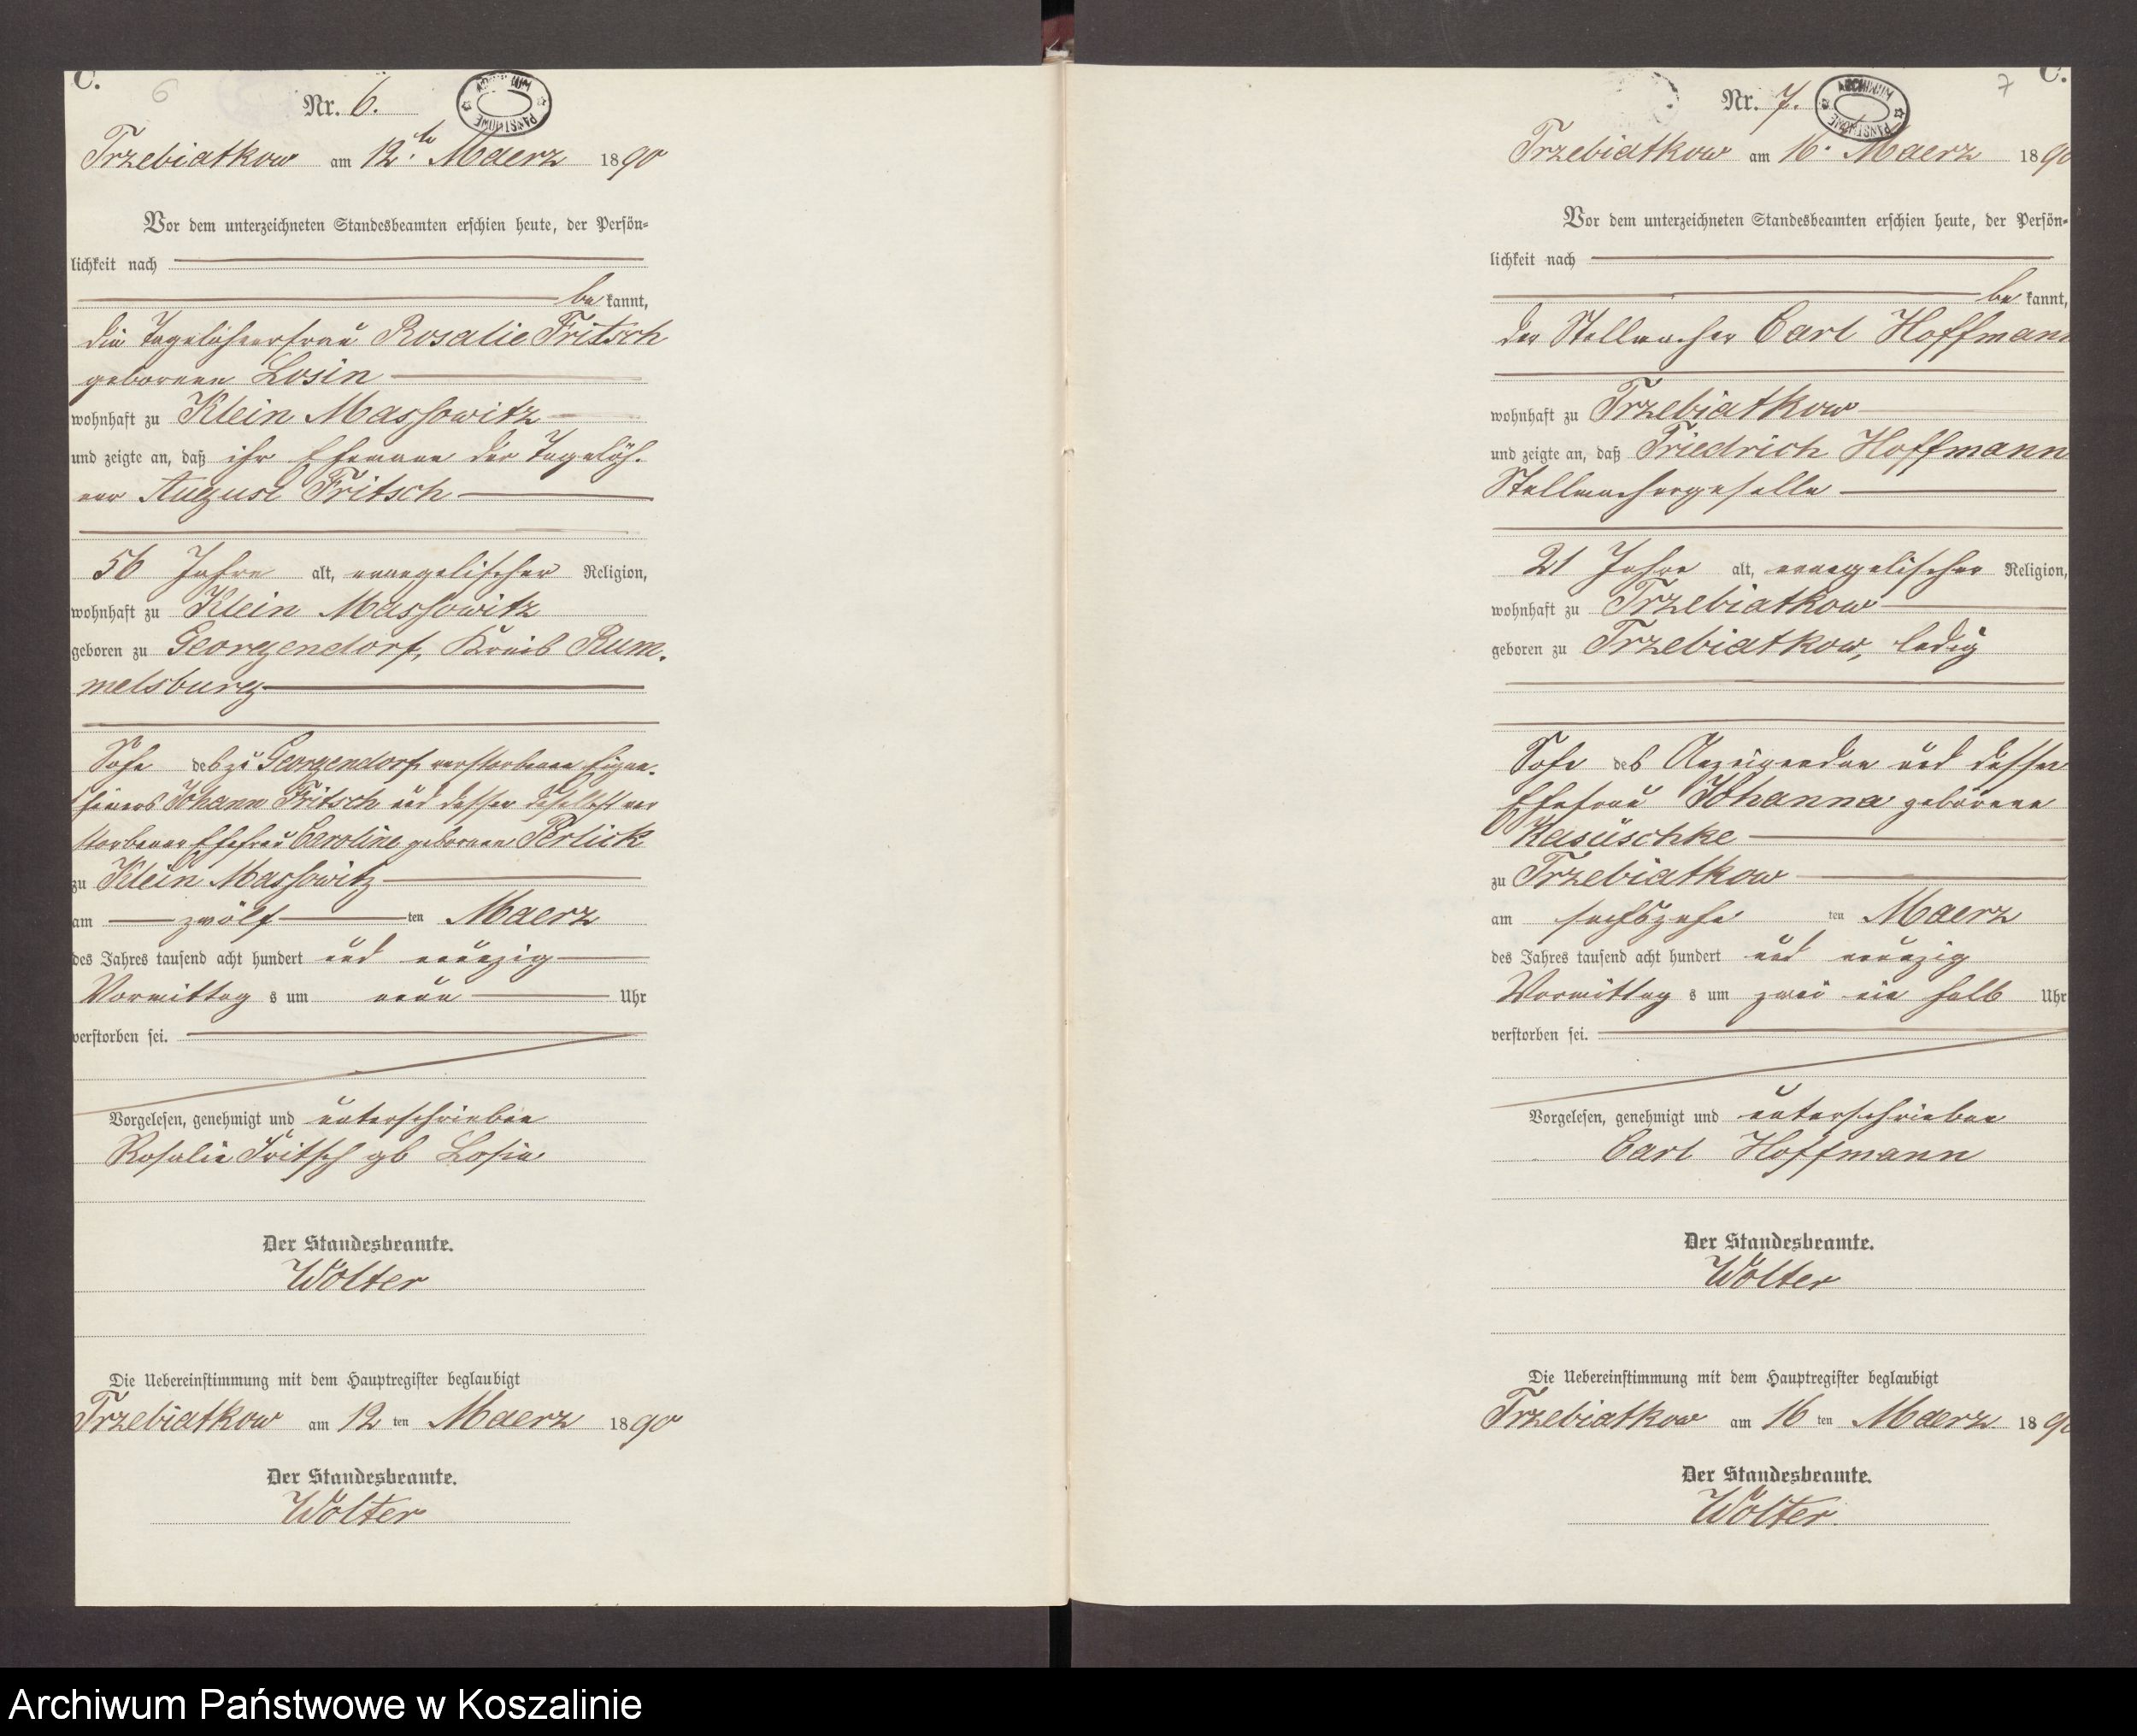 C.
6
Nr. 6.
ARCHIWUM PAŃSTWOWE
Trzebiatkow am 12.ten Maerz 1890
Vor dem unterzeichneten Standesbeamten erschien heute, der Persön-
lichkeit nach
bekannt,
die Tagelöhnerfrau Rosalie Fritsch
geborene Losin
wohnhaft zu Klein Massowitz
und zeigte an, daß ihr Ehemann der Tagelöh-
ner August Fritsch
56 Jahre alt, evangelischer Religion,
wohnhaft zu Klein Massowitz
geboren zu Georgendorf, Kreis Rum-
melsburg
Sohn des zu Georgendorf verstorbenen Eigen-
thümers Johann Fritsch und dessen daselbst ver
storbener Ehefrau Caroline geborenen Perlick
zu Klein Massowitz
am zwölf ten Maerz
des Jahres tausend acht hundert und neunzig
Vormittags um neun Uhr
verstorben sei.
Vorgelesen, genehmigt und unterschrieben
Rosalie Fritsch gb Losin
Der Standesbeamte.
Wolter
Die Uebereinstimmung mit dem Hauptregister beglaubigt
Trzebiatkow am 12 ten Maerz 1890
Der Standesbeamte.
Wolter
C.
7
Nr. 7.
ARCHIWUM PAŃSTWOWE
Trzebiatkow am 16. Maerz 1890
Vor dem unterzeichneten Standesbeamten erschien heute, der Persön-
lichkeit nach
bekannt,
der Stellmacher Carl Hoffmann
wohnhaft zu Trzebiatkow
und zeigte an, daß Friedrich Hoffmann
Stellmachergeselle
21 Jahre alt, evangelischer Religion,
wohnhaft zu Trzebiatkow
geboren zu Trzebiatkow, ledig
Sohn des Anzeigenden und dessen
Ehefrau Johanna geborene
Kasüschke
zu Trzebiatkow
am sechszehn ten Maerz
des Jahres tausend acht hundert und neunzig
Vormittags um zwei ein halb Uhr
verstorben sei.
Vorgelesen, genehmigt und unterschrieben
Carl Hoffmann
Der Standesbeamte.
Wolter
Die Uebereinstimmung mit dem Hauptregister beglaubigt
Trzebiatkow am 16 ten Maerz 1890
Der Standesbeamte.
Wolter.
Archiwum Państwowe w Koszalinie